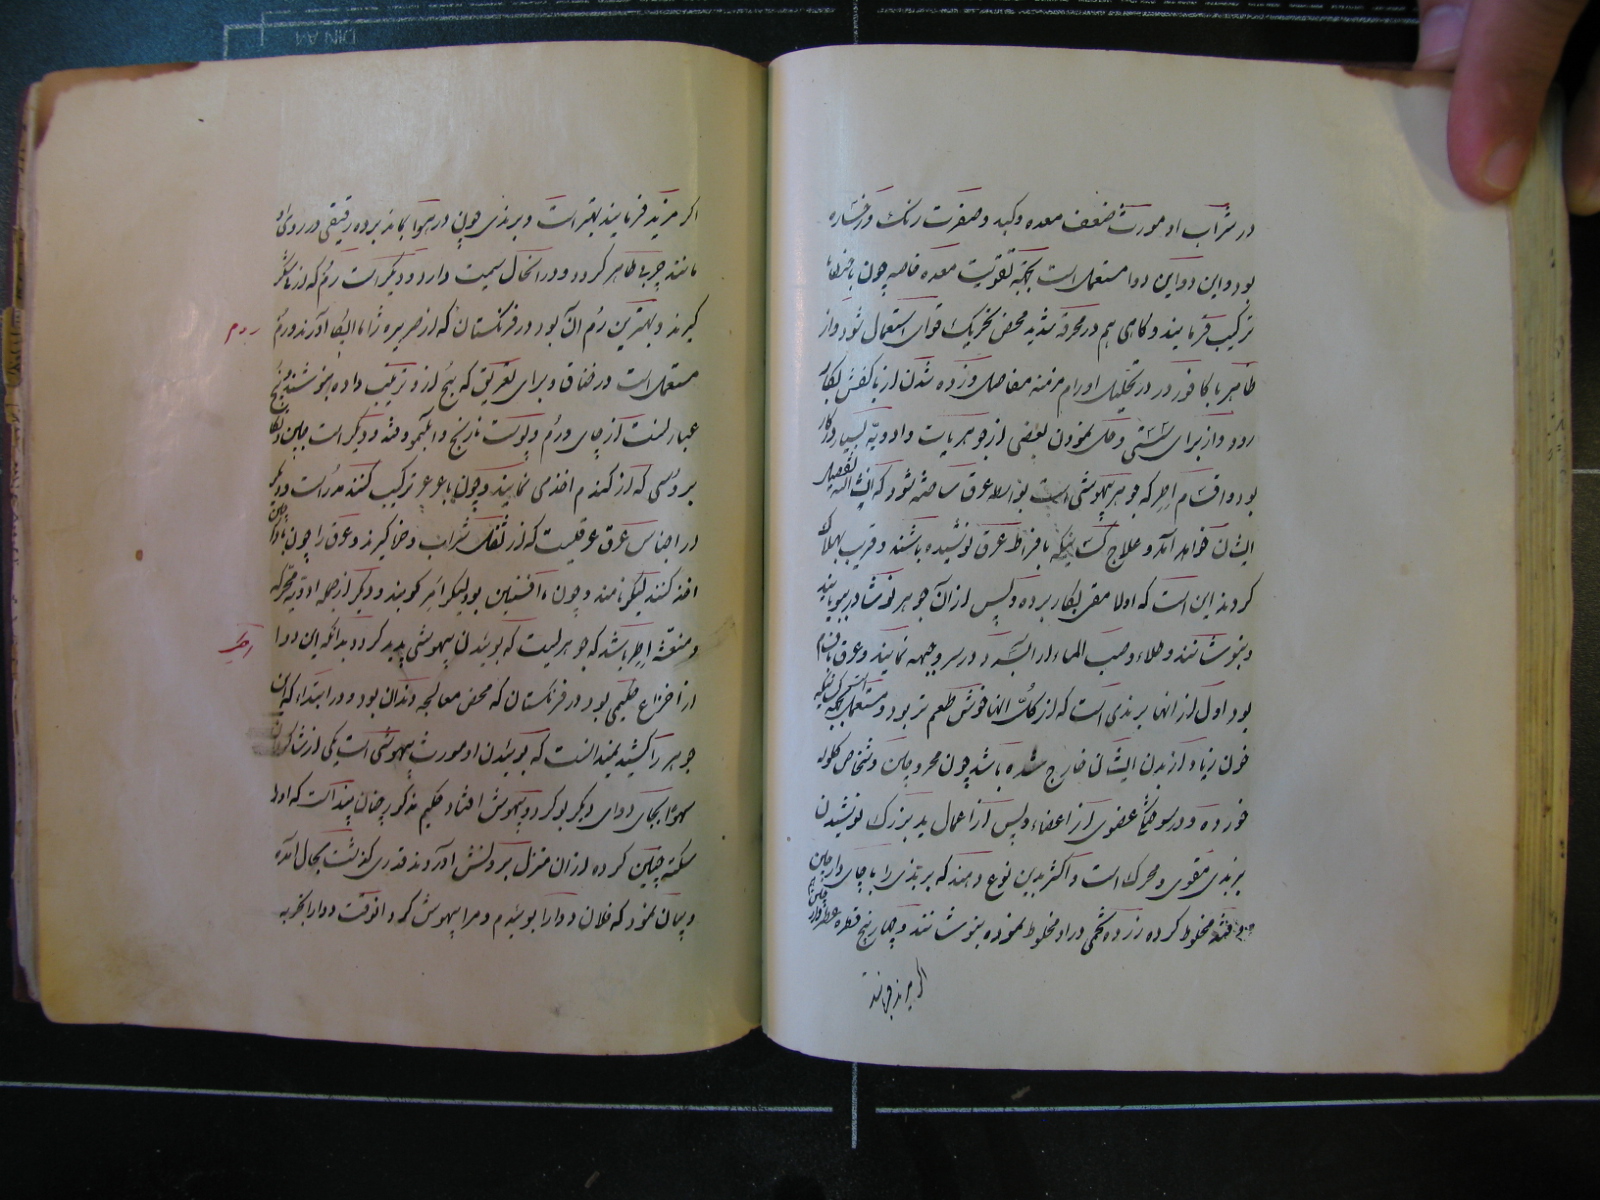 در شراب او مورث ضعف معده و کبد و صفرت رنگ و رخساره
بود و این دو این دوا مستعمل است بجهة تقویت معده خاصه چون با خرطا
ترکیب فرمایند و کاهی هم در محرقه شدیده محض تحریک قوای استعمال شود و از
ظاهر با کافور در تحلیل اورام مزمنه مفاصل و زده شدن از پا کفش بکار
رود و از برای شستی و حل نمودن بعضی از جوهریات و ادویه بسیار در کار
بود و اقسام اطر که جوهر بیهوشی است بواسطه عرق ساخته شود که انشاالله تفصیل
ایشان خواهد آمد و علاج کسانیکه بافراط عرق نوشیده باشند و قریب بهلاک
کردند این است که اولا مقی بکار برده و پس از آن جوهر نوشادر ببویانند
و بنوشانند و طلاء و صب الماء البارد در سر و جبهه نمایند و عرق باقسام
بود اول از انها برندی است که از کل انها خوش طعم تر بود و مستعمل بجهة کسانیکه
خون زیاد از بدن ایشان خارج شده باشد چون مجروحین و اشخاص کلوله
خورده و در سوختن عضوی از اعضاء و پس از اعمال ید بزرک نوشیدن
برندی مقوی و محرک است و اکثر بدین نوع دهند که برندی را با چای دارچین
مخلوط کرده زرده تخمی در او مخلوط نموده بنوشانند و چهار پنج قطره عطر دارچین هم
اکر مزید فرمایند
اکر مزید فرمایند بهتر است و برندی چون در هوا بماند پرده رقیقی در روی او
مانند چربی ظاهر کردد و در انحال سمیت دارد و دیگر است رم که از شکر
کیرند و بهترین رم آن بود در فرنکستان که از جزیره ژامائیکا آورند و رم
روم
مستعمل است در خناق و برای تعریق که پنج از و ترتیب داده بنوشند و پنج
عبارتست از چای و رم و پوست نارنج و آبلیمو و قند و دیگر است جین
بروسی که از کندم اخذ می نمایند و چون با عرعر ترکیب کنند مدر است و دیگر
در اجناس عرق عرقیست که از ثفل شراب و خل کیرند و عرق را چون با
اخذ کنند لیکر نامند و چون با افسنتین بود لیکر امر کویند و دیگر از جمله ادویه محرکه
و منعشه اطر باشد که جوهریست که بوئیدن بیهوشی پدید کردد بدانکه این دوا
اطر
از اختراع حکیمی بود در فرنکستان که محض معالجه دندان بود و در ابتدا که این
جوهر را کشید نمیدانست که بوئیدن او مورث بیهوشی است یکی از شاکردان
سهوا بجای دوای دیگر بو کرد و بیهوش افتاد حکیم مذکور چنان پنداشت که او را
سکته چنین کرده از ان منزل بیرونش آوردند قدری کذشت بحال آمده
و بیان نمود که فلان دوا را بوئیدم و مرا بیهوش کرد انوقت دوا را بتجربه